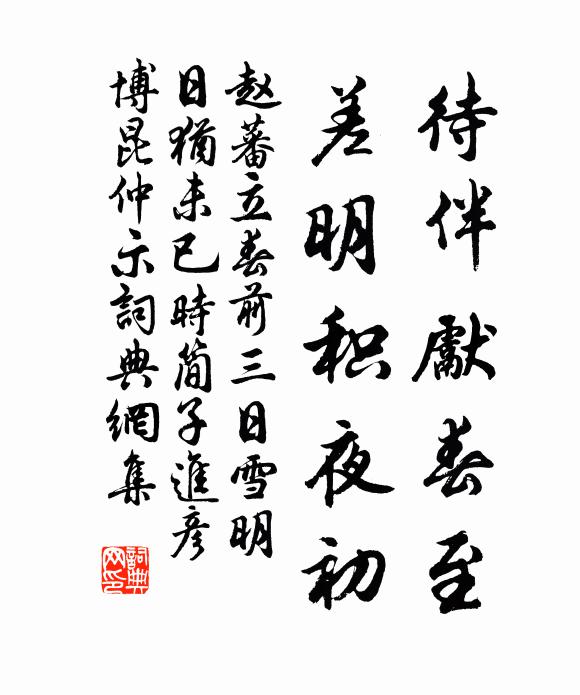 待伴獻春至
差明积夜初
赵蕃立春前三日雪明
日猶未已時简子進彦
博昆仲示詞典網集
詞典网印